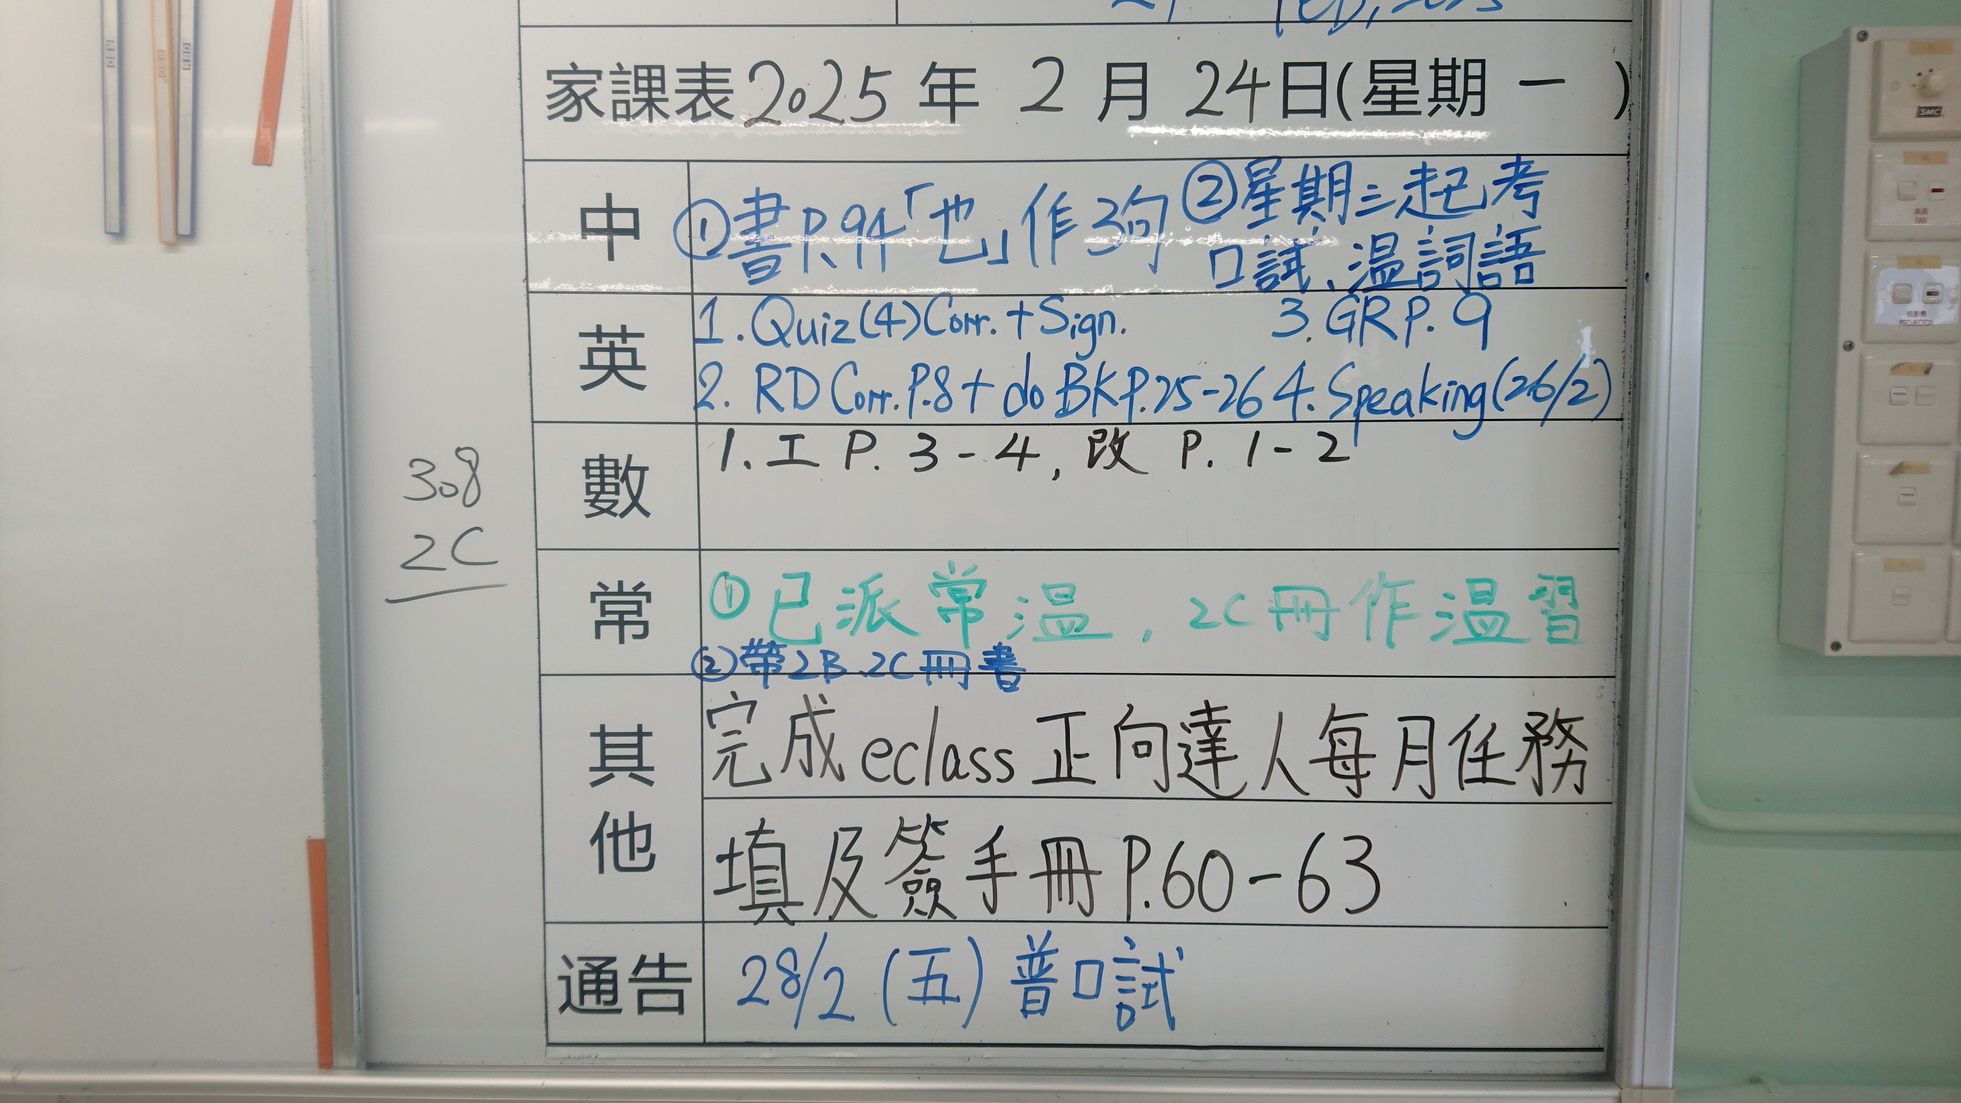 家課表2025年 2 月 24日(星期 一 )
中
①書P.94「也」作3句
②星期三起考
口試、溫詞語
英
1. Quiz(4) Corr. + Sign.
3. GR P. 9
2. RD Corr. P.8 + do BK P.25-26
4. Speaking (26/2)
數
1. 工 P. 3 - 4, 改 P. 1 - 2
308
2C
常
①已派常溫, 2C冊作溫習
②帶2B、2C冊書
其他
完成eclass正向達人每月任務
填及簽手冊P.60-63
通告
28/2 (五) 普口試
SMC
FAN
PROJECTOR